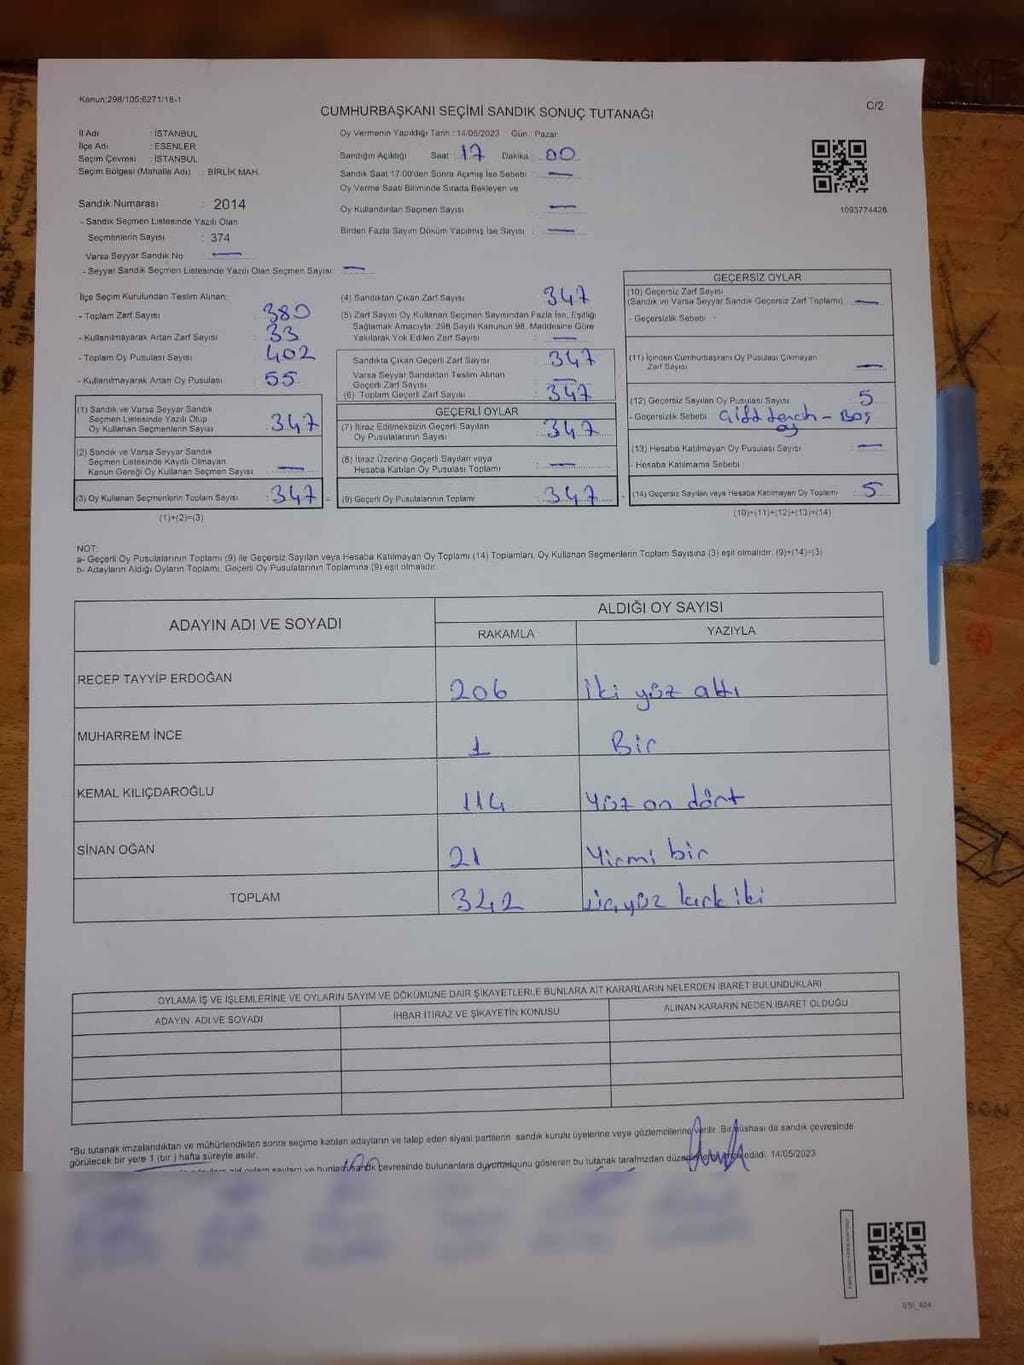 Kanun:298/105;6271/18-1
C/2
CUMHURBAŞKANI SEÇİMİ SANDIK SONUÇ TUTANAĞI
İl Adı : İSTANBUL
İlçe Adı : ESENLER
Seçim Çevresi : İSTANBUL
Seçim Bölgesi (Mahalle Adı) : BİRLİK MAH.
Sandık Numarası : 2014
- Sandık Seçmen Listesinde Yazılı Olan
Seçmenlerin Sayısı : 374
Varsa Seyyar Sandık No : —
- Seyyar Sandık Seçmen Listesinde Yazılı Olan Seçmen Sayısı: —
Oy Vermenin Yapıldığı Tarih : 14/05/2023 Gün : Pazar
Sandığın Açıldığı Saat : 17 Dakika : 00
Sandık Saat 17:00'den Sonra Açımış İse Sebebi : —
Oy Verme Saati Bitiminde Sırada Bekleyen ve
Oy Kullandırılan Seçmen Sayısı : —
Birden Fazla Sayım Döküm Yapılmış İse Sayısı : —
1093774428
İlçe Seçim Kurulundan Teslim Alınan:
- Toplam Zarf Sayısı : 380
- Kullanılmayarak Artan Zarf Sayısı : 33
- Toplam Oy Pusulası Sayısı : 402
- Kullanılmayarak Artan Oy Pusulası : 55
(1) Sandık ve Varsa Seyyar Sandık
Seçmen Listesinde Yazılı Olup
Oy Kullanan Seçmenlerin Sayısı : 347
(2) Sandık ve Varsa Seyyar Sandık
Seçmen Listesinde Kayıtlı Olmayan
Kanun Gereği Oy Kullanan Seçmen Sayısı : —
(3) Oy Kullanan Seçmenlerin Toplam Sayısı : 347
(1)+(2)=(3)
(4) Sandıktan Çıkan Zarf Sayısı : 347
(5) Zarf Sayısı Oy Kullanan Seçmen Sayısından Fazla İse, Eşitliği
Sağlamak Amacıyla; 298 Sayılı Kanunun 98. Maddesine Göre
Yakılarak Yok Edilen Zarf Sayısı : —
Sandıkta Çıkan Geçerli Zarf Sayısı : 347
Varsa Seyyar Sandıktan Teslim Alınan
Geçerli Zarf Sayısı : —
(6) Toplam Geçerli Zarf Sayısı : 347
GEÇERLİ OYLAR
(7) İtiraz Edilmeksizin Geçerli Sayılan
Oy Pusulalarının Sayısı : 347
(8) İtiraz Üzerine Geçerli Sayılan veya
Hesaba Katılan Oy Pusulası Toplamı : —
(9) Geçerli Oy Pusulalarının Toplamı : 347
GEÇERSİZ OYLAR
(10) Geçersiz Zarf Sayısı
(Sandık ve Varsa Seyyar Sandık Geçersiz Zarf Toplamı) : —
- Geçersizlik Sebebi :
(11) İçinden Cumhurbaşkanı Oy Pusulası Çıkmayan
Zarf Sayısı : —
(12) Geçersiz Sayılan Oy Pusulası Sayısı : 5
- Geçersizlik Sebebi : Çift tercih - Boş
oy
(13) Hesaba Katılmayan Oy Pusulası Sayısı : —
- Hesaba Katılmama Sebebi :
(14) Geçersiz Sayılan veya Hesaba Katılmayan Oy Toplamı : 5
(10)+(11)+(12)+(13)=(14)
NOT:
a- Geçerli Oy Pusulalarının Toplamı (9) ile Geçersiz Sayılan veya Hesaba Katılmayan Oy Toplamı (14) Toplamları, Oy Kullanan Seçmenlerin Toplam Sayısına (3) eşit olmalıdır. (9)+(14)=(3)
b- Adayların Aldığı Oyların Toplamı, Geçerli Oy Pusulalarının Toplamına (9) eşit olmalıdır.
ADAYIN ADI VE SOYADI
ALDIĞI OY SAYISI
RAKAMLA YAZIYLA
RECEP TAYYİP ERDOĞAN 206 iki yüz altı
MUHARREM İNCE 1 Bir
KEMAL KILIÇDAROĞLU 114 Yüz on dört
SİNAN OĞAN 21 Yirmi bir
TOPLAM 342 üçyüz kırk iki
OYLAMA İŞ VE İŞLEMLERİNE VE OYLARIN SAYIM VE DÖKÜMÜNE DAİR ŞİKAYETLERLE BUNLARA AİT KARARLARIN NELERDEN İBARET BULUNDUKLARI
ADAYIN ADI VE SOYADI İHBAR İTİRAZ VE ŞİKAYETİN KONUSU ALINAN KARARIN NEDEN İBARET OLDUĞU
*Bu tutanak imzalandıktan ve mühürlendikten sonra seçime katılan adayların ve talep eden siyasi partilerin sandık kurulu üyelerine veya gözlemcilerine verilir. Bir nüshası da sandık çevresinde
görülecek bir yere 1 (bir ) hafta süreyle asılır.
çevresinde bulunanlara duyurulduğunu gösteren bu tutanak tarafımızdan edildi. 14/05/2023